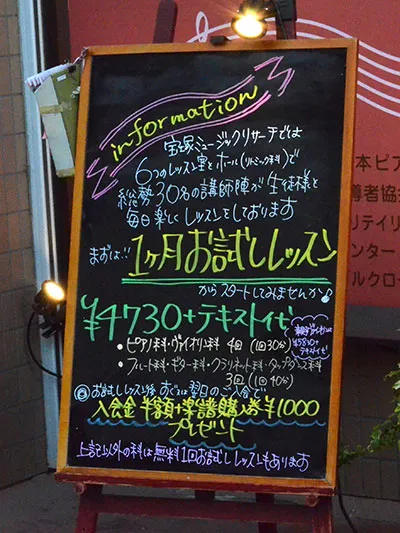 information
宝塚ミュージックリサーチでは
6つのレッスン室とホール(リトミック科)で
総勢30名の講師陣が生徒様と
毎日楽しくレッスンをしております
まずは!!
1ヶ月お試しレッスン
からスタートしてみませんか♪
¥4730+テキスト代
•ピアノ科・ヴァイオリン科 4回(1回30分)
¥5810+
テキスト代
•フルート科・ギター科・クラリネット科・タップダンス科
3回(1回40分)
お試しレッスン後 翌日のご入会で
入会金半額+楽譜購入券¥1000
プレゼント
上記以外の科は無料1回お試しレッスンもあります
本ピア
導者協
リテイリ
ンター
ルクロー